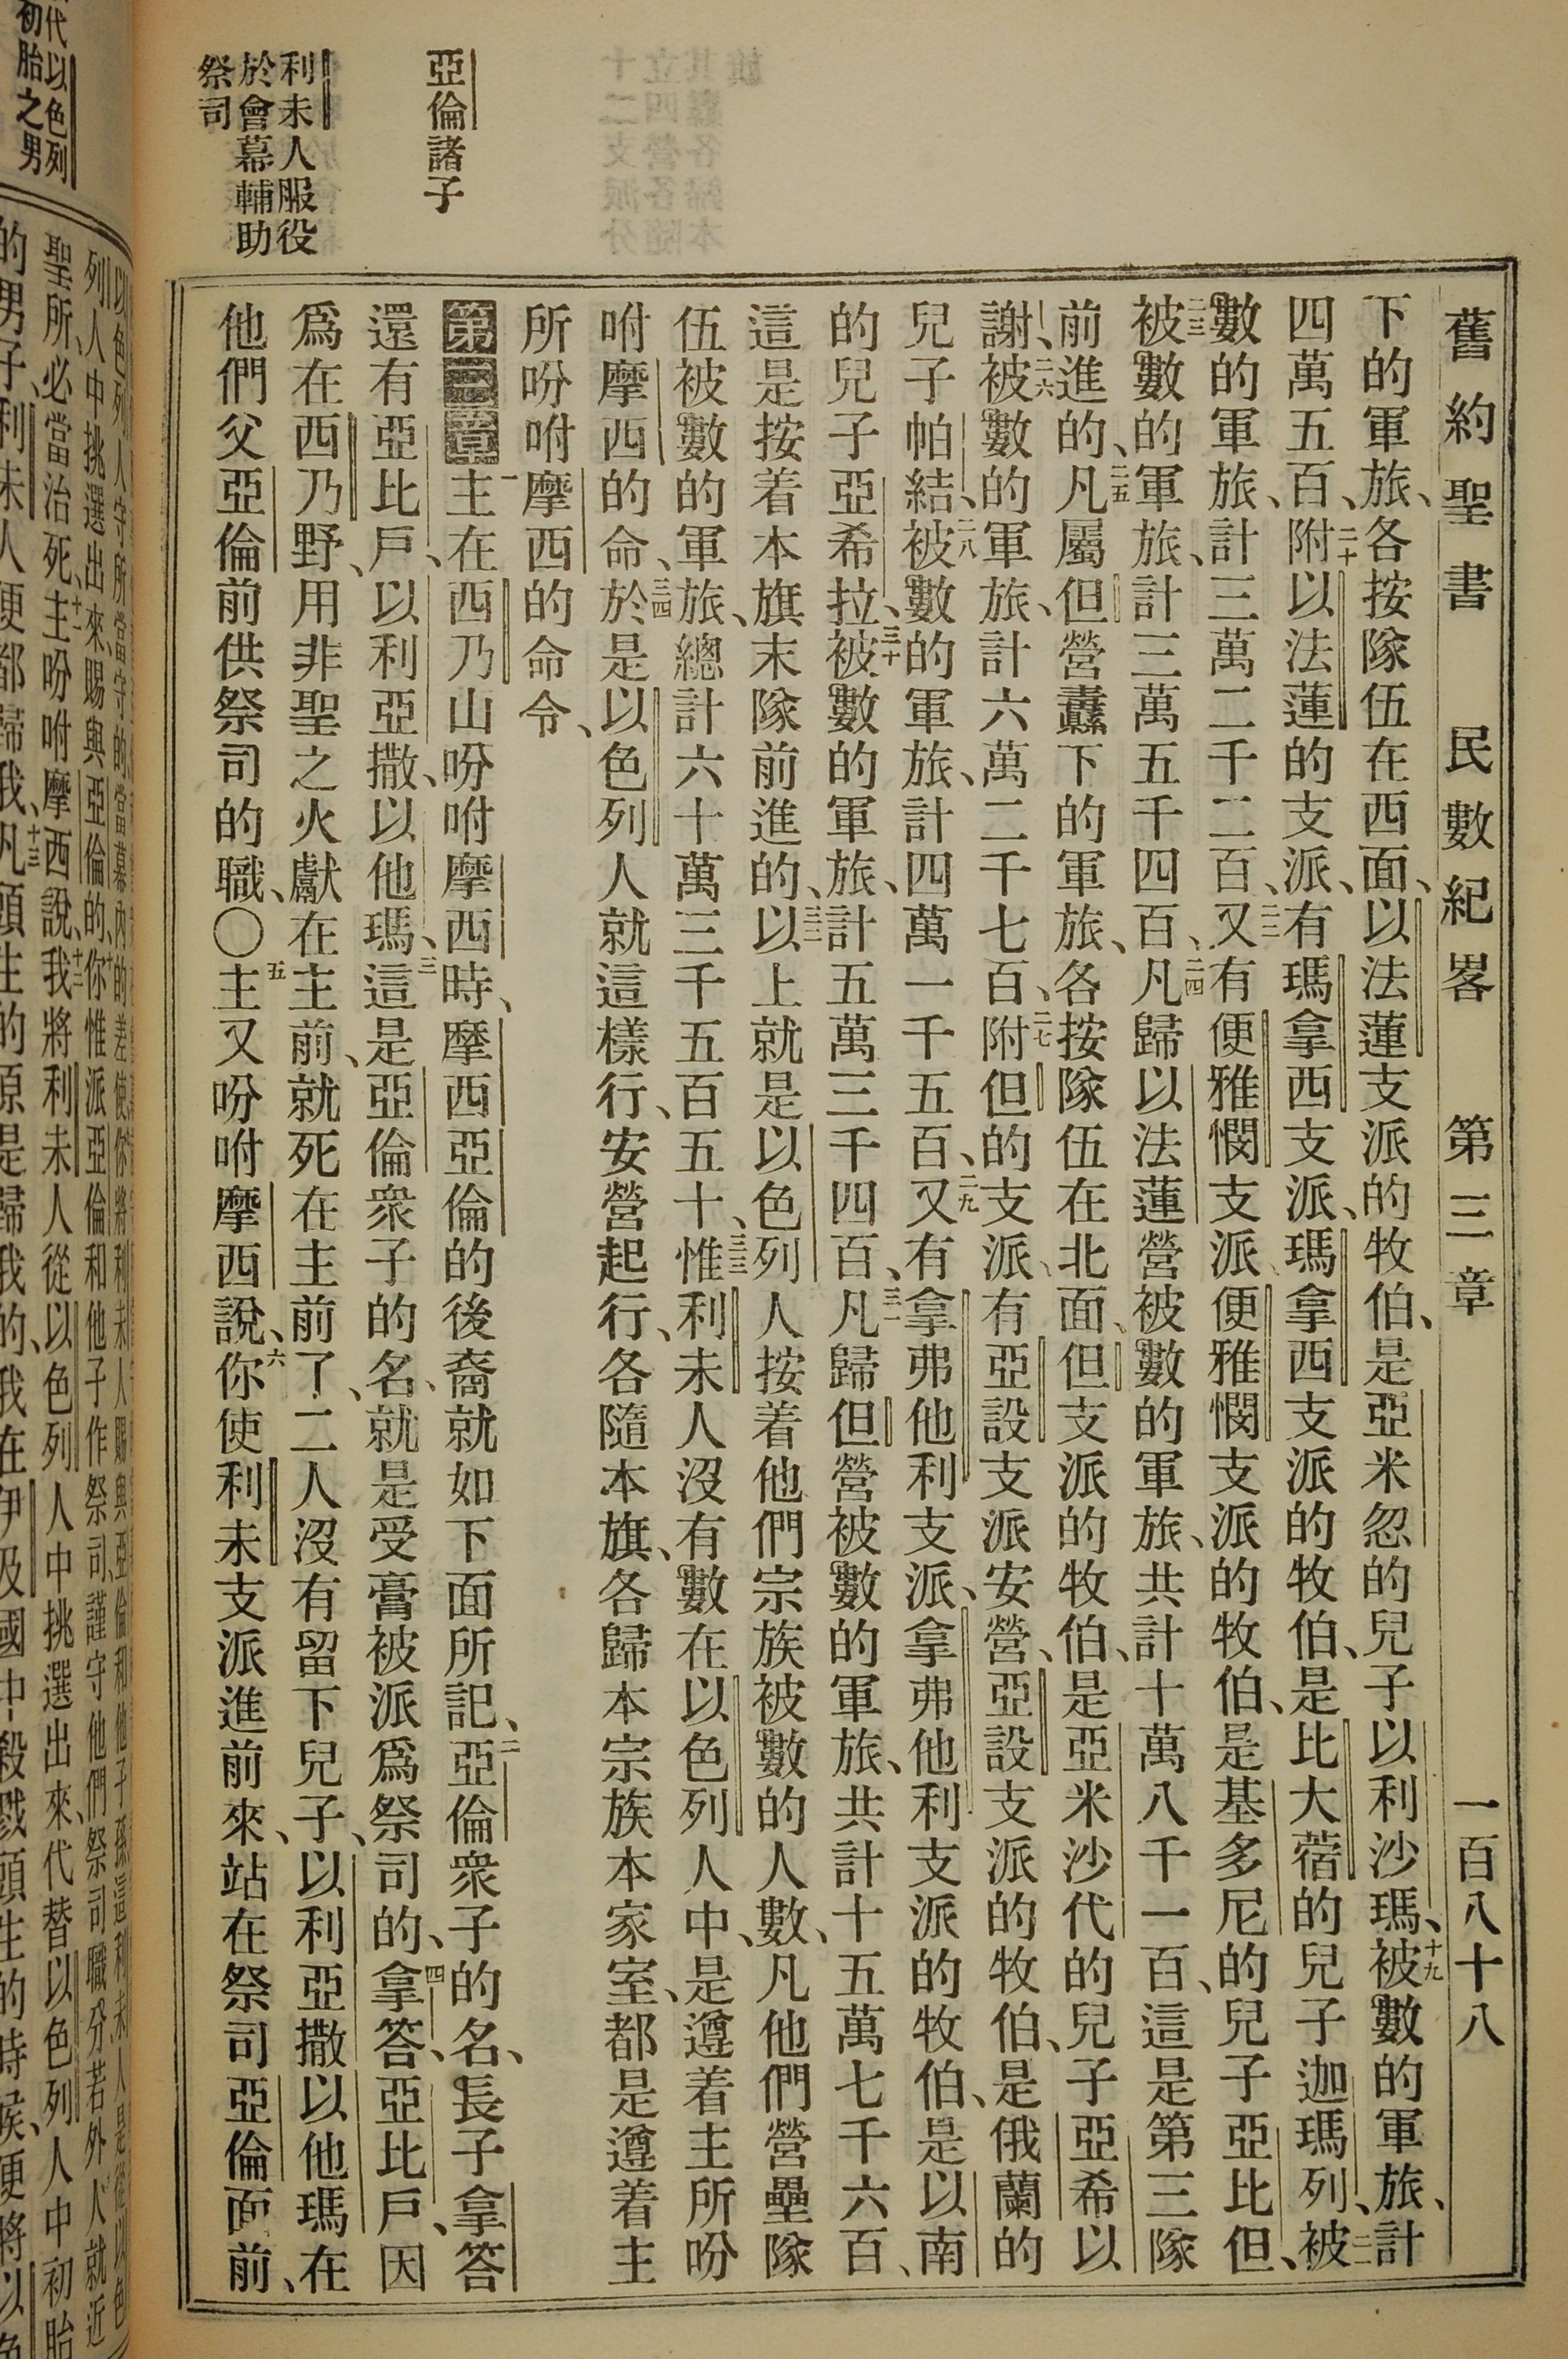 舊約聖書　民數紀畧　第三章　一百八十八
下的軍旅、各按隊伍在西面、以法蓮支派的牧伯、是亞米忽的兒子以利沙瑪、十九被數的軍旅、計
四萬五百、二十附以法蓮的支派、有瑪拿西支派、瑪拿西支派的牧伯、是比大蓿的兒子迦瑪列、二一被
數的軍旅、計三萬二千二百、二二又有便雅憫支派、便雅憫支派的牧伯、是基多尼的兒子亞比但、
二三被數的軍旅、計三萬五千四百、二四凡歸以法蓮營被數的軍旅、共計十萬八千一百、這是第三隊
前進的、二五凡屬但營纛下的軍旅、各按隊伍在北面、但支派的牧伯、是亞米沙代的兒子亞希以
謝、二六被數的軍旅、計六萬二千七百、二七附但的支派、有亞設支派安營、亞設支派的牧伯、是俄蘭的
兒子帕結、二八被數的軍旅、計四萬一千五百、二九又有拿弗他利支派、拿弗他利支派的牧伯、是以南
的兒子亞希拉、三十被數的軍旅、計五萬三千四百、三一凡歸但營被數的軍旅、共計十五萬七千六百、
這是按着本旗末隊前進的、三二以上就是以色列人按着他們宗族被數的人數、凡他們營壘隊
伍被數的軍旅、總計六十萬三千五百五十、三三惟利未人沒有數在以色列人中、是遵着主所吩
咐摩西的命、三四於是以色列人就這樣行、安營起行、各隨本旗、各歸本宗族本家室、都是遵着主
所吩咐摩西的命令、
第三章一主在西乃山吩咐摩西時、摩西亞倫的後裔就如下面所記、二亞倫衆子的名、長子拿答
還有亞比戶、以利亞撒、以他瑪、三這是亞倫衆子的名、就是受膏被派爲祭司的、四拿答、亞比戶、因
爲在西乃野、用非聖之火獻在主前、就死在主前了、二人沒有留下兒子、以利亞撒以他瑪在
他們父亞倫前供祭司的職、〇五主又吩咐摩西說、六你使利未支派進前來、站在祭司亞倫面前、
亞倫諸子
利未人服役
於會幕輔助
祭司
代以色列
初胎之男
以色列人守所當守的、當幕內的差使、你將利未人賜與亞倫和他子孫、這利未人是從以色
列人中挑選出來、賜與亞倫的、十你惟派亞倫和他子作祭司、謹守他們祭司職分、若外人就近
聖所、必當治死、十一主吩咐摩西說、十二我將利未人從以色列人中挑選出來、代替以色列人中初胎
的男子、利未人便都歸我、十三凡頭生的原是歸我的、我在伊及國中殺戮頭生的時候、便將以色